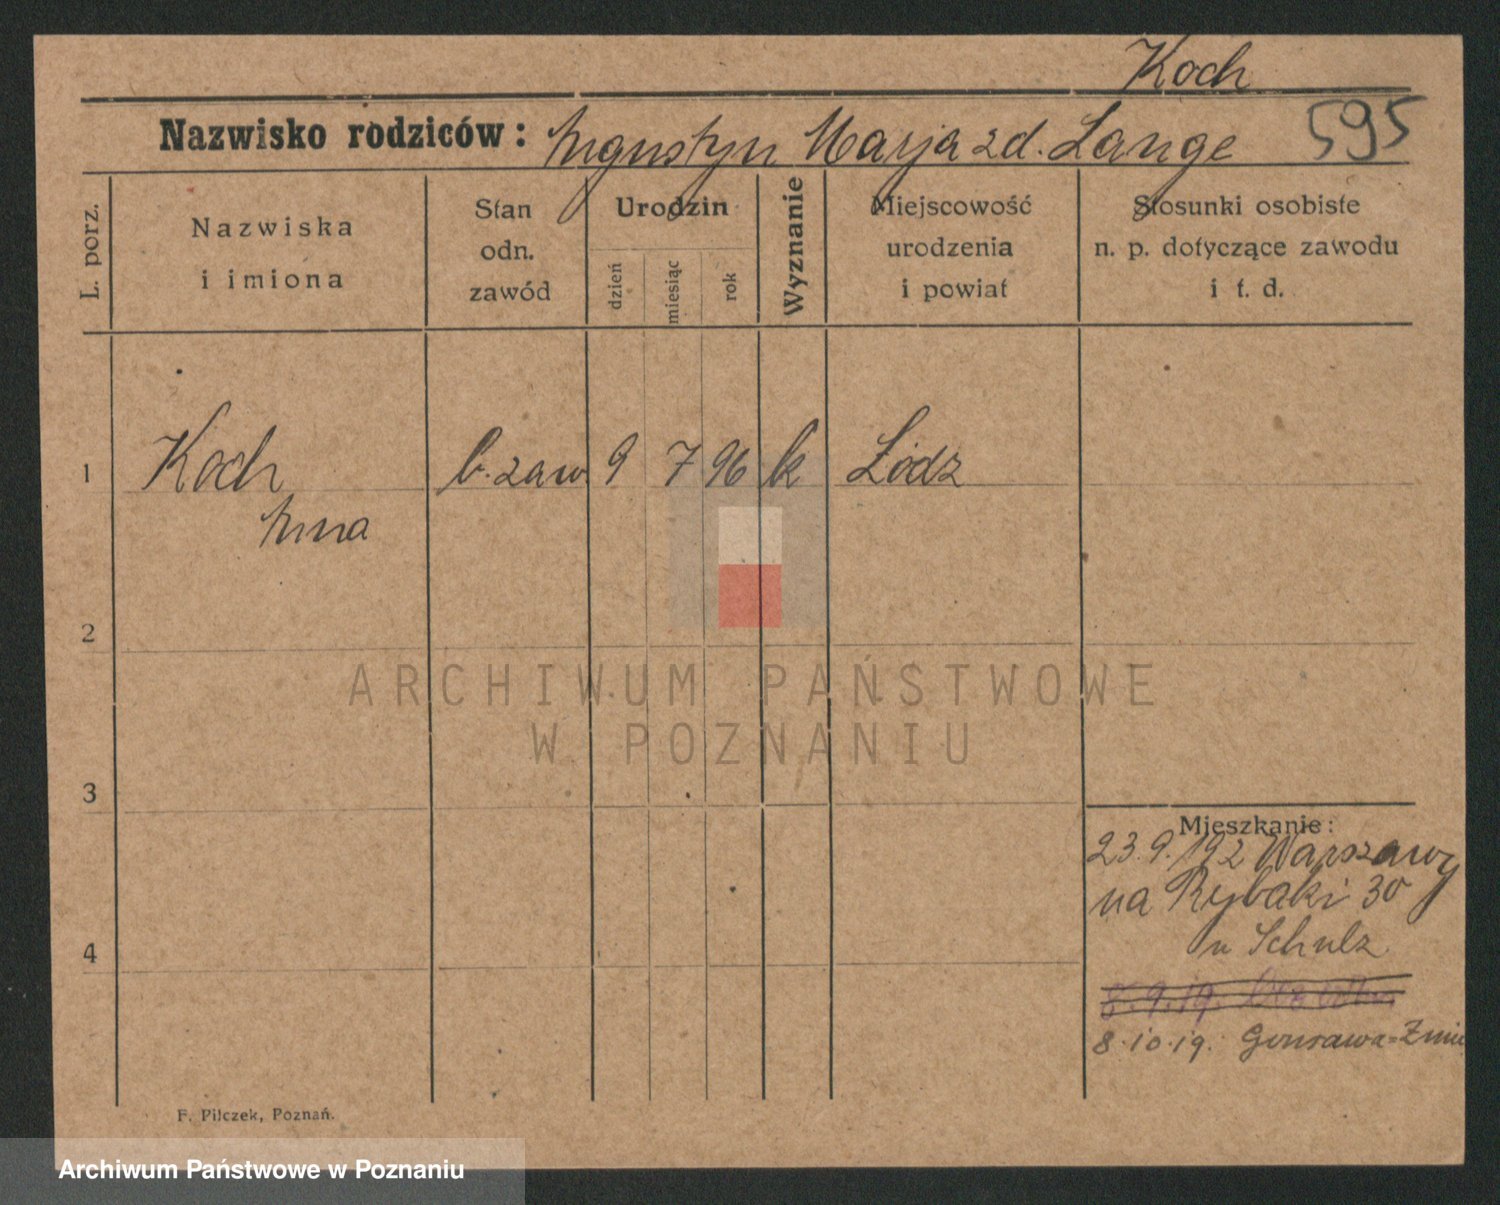 Koch
Nazwisko rodziców: Augustyn Marja zd. Lange 595
L. porz.
Nazwiska i imiona
Stan odn. zawód
Urodzin
dzień
miesiąc
rok
Wyznanie
Miejscowość urodzenia i powiat
Stosunki osobiste n. p. dotyczące zawodu i t. d.
1 Koch b. zaw. 9 7 96 k Łódz
Anna
2
ARCHIWUM PAŃSTWOWE
W POZNANIU
3
Mieszkanie:
23.9.192 Warszawy
na Rybaki 30
u Schulz
4
8.9.19.
8.10.19. Gonsawa=Znin
F. Pilczek, Poznań.
Archiwum Państwowe w Poznaniu